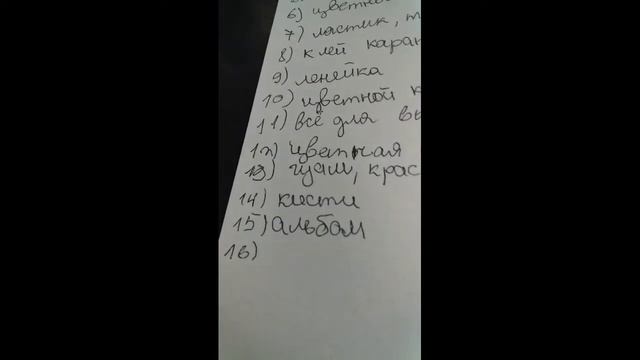 6) цветно
7) ластик, т
8) клей каран
9) ленейка
10) цветной к
11) всё для вы
12) цветная
13) гуаш, крас
14) кисти
15) альбом
16)